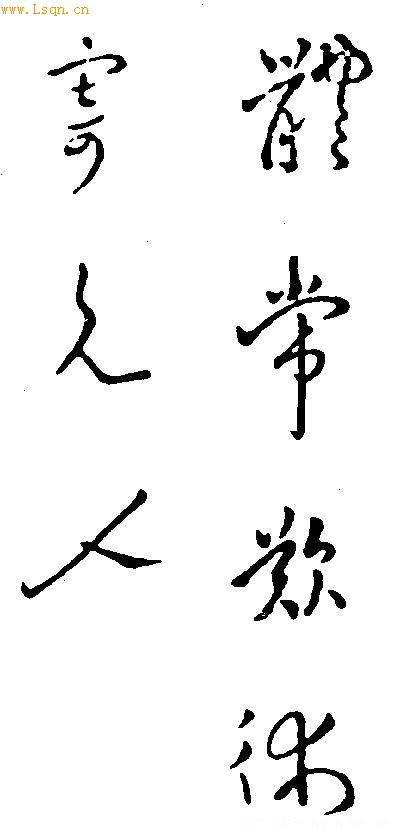 www.Lsqn.cn
體常歎術
寄人